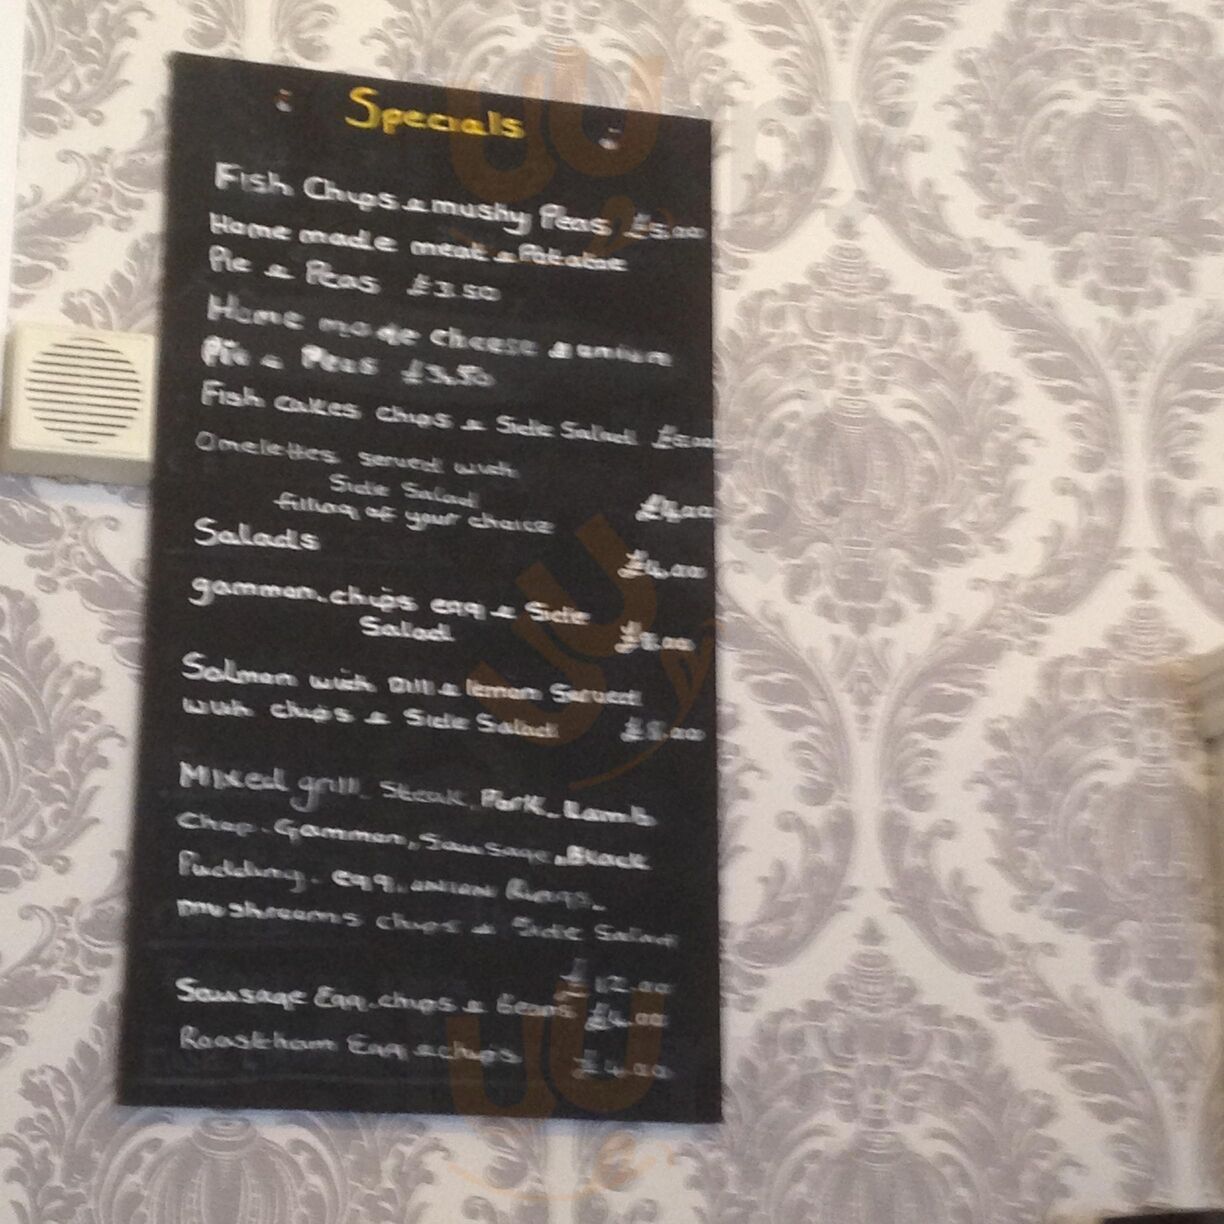 Specials
Fish Chips & mushy Peas £5.00
Home made meat & Potatoe
Pie & Peas £3.50
Home made cheese & onion
Pie & Peas £3.50
Fish cakes chips & Side Salad
Omelettes served with
Side Salad
filling of your choice £4.00
Salads £4.00
gammon. chips egg & Side
Salad
Salmon with Dill & lemon Served
with chips & Side Salad
Mixed grill. Steak. Pork. Lamb
Chop. Gammon, Sausage, Black
Pudding. egg. onion Rings.
mushrooms chips & Side Salad
£12.00
Sausage Egg. chips & Beans £4.00
Roast ham Egg & chips £4.00